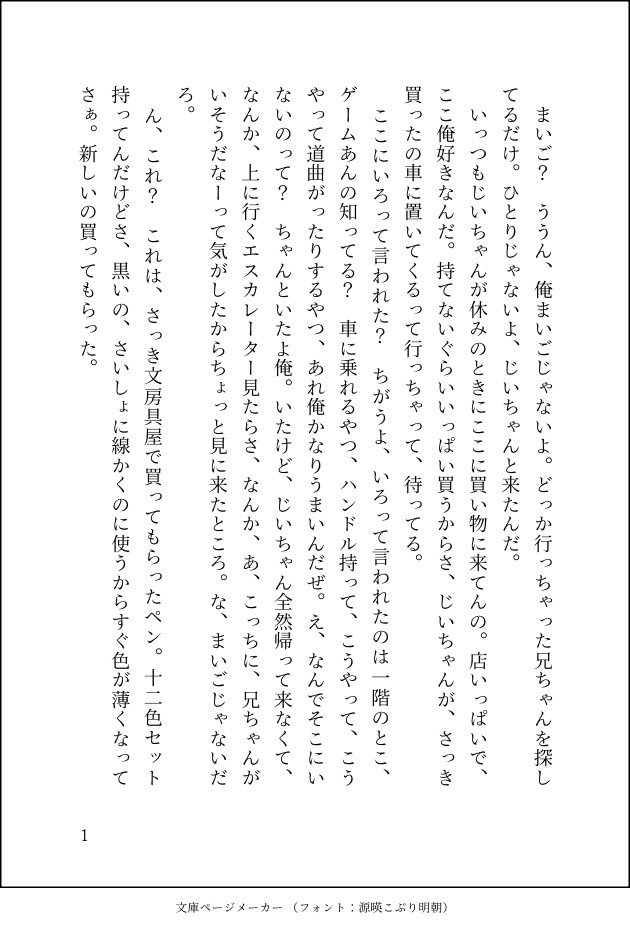 まいご？　ううん、俺まいごじゃないよ。どっか行っちゃった兄ちゃんを探し
てるだけ。ひとりじゃないよ、じいちゃんと来たんだ。
いっつもじいちゃんが休みのときにここに買い物に来てんの。店いっぱいで、
ここ俺好きなんだ。持てないぐらいいっぱい買うからさ、じいちゃんが、さっき
買ったの車に置いてくるって行っちゃって、待ってる。
ここにいろって言われた？　ちがうよ、いろって言われたのは一階のとこ、
ゲームあんの知ってる？　車に乗れるやつ、ハンドル持って、こうやって、こう
やって道曲がったりするやつ、あれ俺かなりうまいんだぜ。え、なんでそこにい
ないのって？　ちゃんといたよ俺。いたけど、じいちゃん全然帰って来なくて、
なんか、上に行くエスカレーター見たらさ、なんか、あ、こっちに、兄ちゃんが
いそうだなーって気がしたからちょっと見に来たところ。な、まいごじゃないだ
ろ。
ん、これ？　これは、さっき文房具屋で買ってもらったペン。十二色セット
持ってんだけどさ、黒いの、さいしょに線かくのに使うからすぐ色が薄くなって
さぁ。新しいの買ってもらった。
1
文庫ページメーカー（フォント：源暎こぶり明朝）